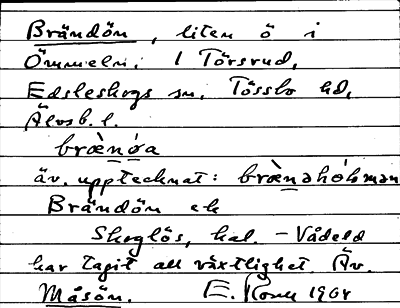 Brändön, liten ö i
Ömmeln. 1 Törsrud,
Edsleskogs sn. Tössbo hd,
Älvsb. l.
äv. upptecknat:
Brändön ek
Skoglös, kal. - Vådeld
har tagit all växtlighet. Äv.
Måsön. E. 1964